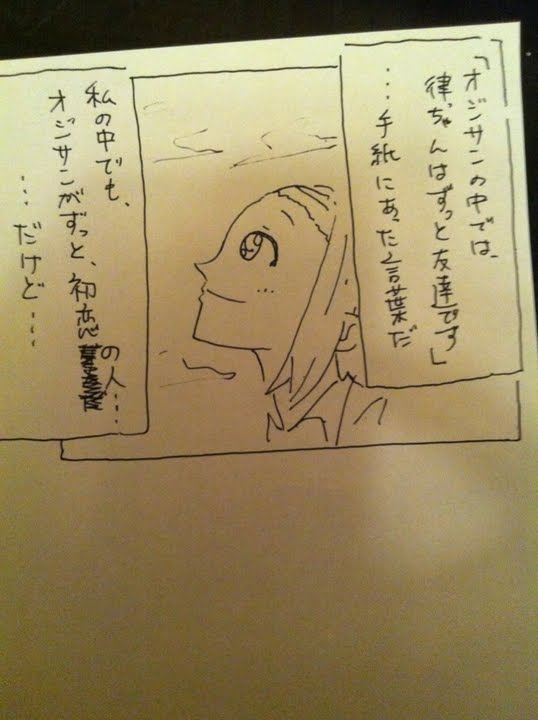 「オジサンの中では、
律ちゃんはずっと友達です」
…手紙にあった言葉だ
私の中でも、
オジサンがずっと、初恋の人…
…だけど…